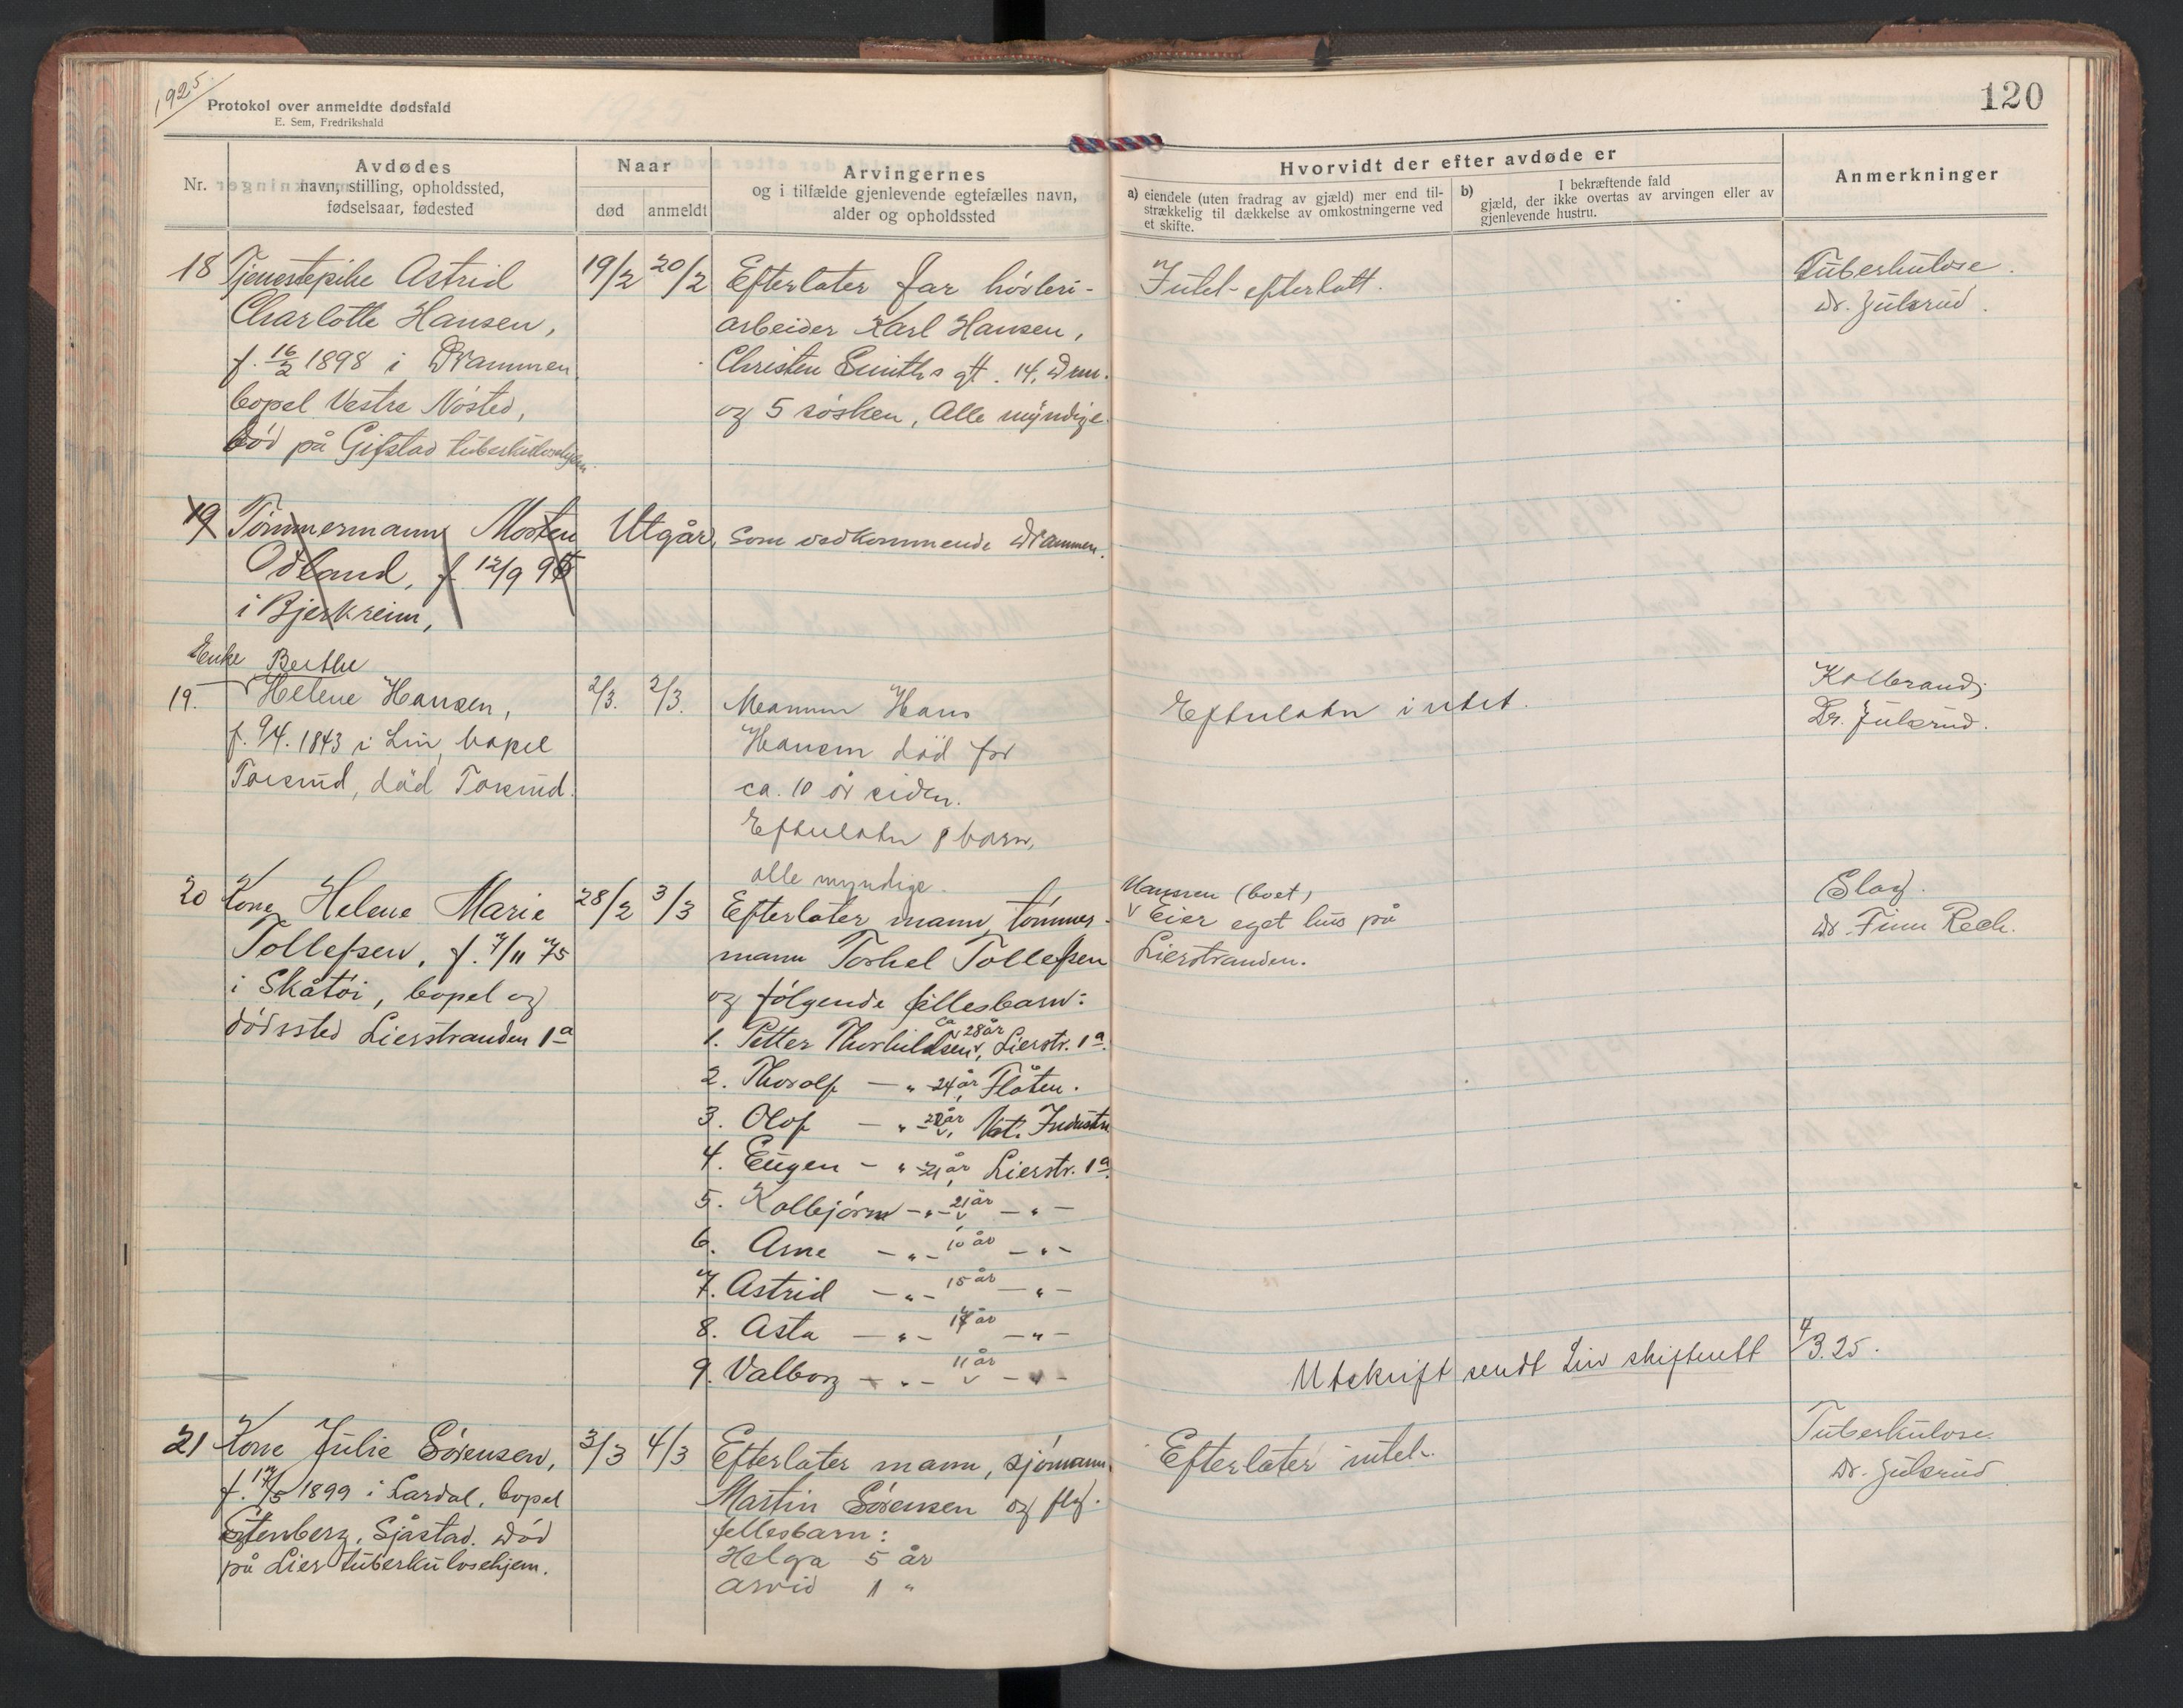 1925
Protokol over anmeldte dødsfald
E. Sem, Fredrikshald
120
Nr.
Avdødes
navn, stilling, opholdssted,
fødselsaar, fødested
Naar
død
anmeldt
Arvingernes
og i tilfælde gjenlevende egtefælles navn,
alder og opholdssted
Hvorvidt der efter avdøde er
a) eiendele (uten fradrag av gjæld) mer end til-
strækkelig til dækkelse av omkostningerne ved
et skifte.
b) I bekræftende fald
gjæld, der ikke overtas av arvingen eller av
gjenlevende hustru.
Anmerkninger
18 Tjenestepike Astrid
Charlotte Hansen,
f. 16/2 1898 i Drammen,
bopel Vestre Nøsted,
død på Gifstad tuberkulosehjem.
19/2 20/2
Efterlater far høvleri-
arbeider Karl Hansen,
Christen Smiths gt. 14, Drm.
og 5 søsken, Alle myndige.
Intet efterlatt.
Tuberkulose.
Dr. Julsrud.
19 Tømmermann Morten
Odland, f. 12/9 95
i Bjerkreim,
Utgår, som vedkommende Drammen.
Enke Berthe
19. Helene Hansen,
f. 9/4. 1843 i Lier, bopel
Torsrud, død Torsrud.
2/3. 2/3.
Mannen Hans
Hansen død for
ca. 10 år siden.
Efterlater 8 barn,
alle myndige.
Efterlater intet.
Kolbrand;
Dr. Julsrud.
20 Kone Helene Marie
Tollefsen, f. 7/11 75
i Skåtøi, bopel og
dødssted Lierstranden 1a
28/2 3/3
Efterlater mann, tømmer-
mann Torkel Tollefsen
og følgende fellesbarn:
1. Petter Thorkildsen, ca 28 år, Lierstr. 1a.
2. Thorolf — " — 24 år, Flåten.
3. Olof — " — år, Nat. Industri
4. Eugen — " — 21 år, Lierstr. 1a.
5. Kolbjørn — " — 21 år — " —
6. Arne — " — 10 år — " —
7. Astrid — " — 15 år — " —
8. Asta — " — år — " —
9. Valborg — " — 11 år — " —
Mannen (boet)
Eier eget hus på
Lierstranden.
Slag.
Dr. Finn Rech.
Utskrift sendt Lier skifterett 4/3.25.
21 Kone Julie Sørensen,
f. 17/5 1899 i Lardal, bopel
Estenberg, Sjåstad. Død
på Lier tuberkulosehjem.
3/3 4/3
Efterlater mann, sjømann
Martin Sørensen og flg.
fellesbarn:
Helga 5 år
Arvid 1 "
Efterlater intet.
Tuberkulose.
Dr. Julsrud